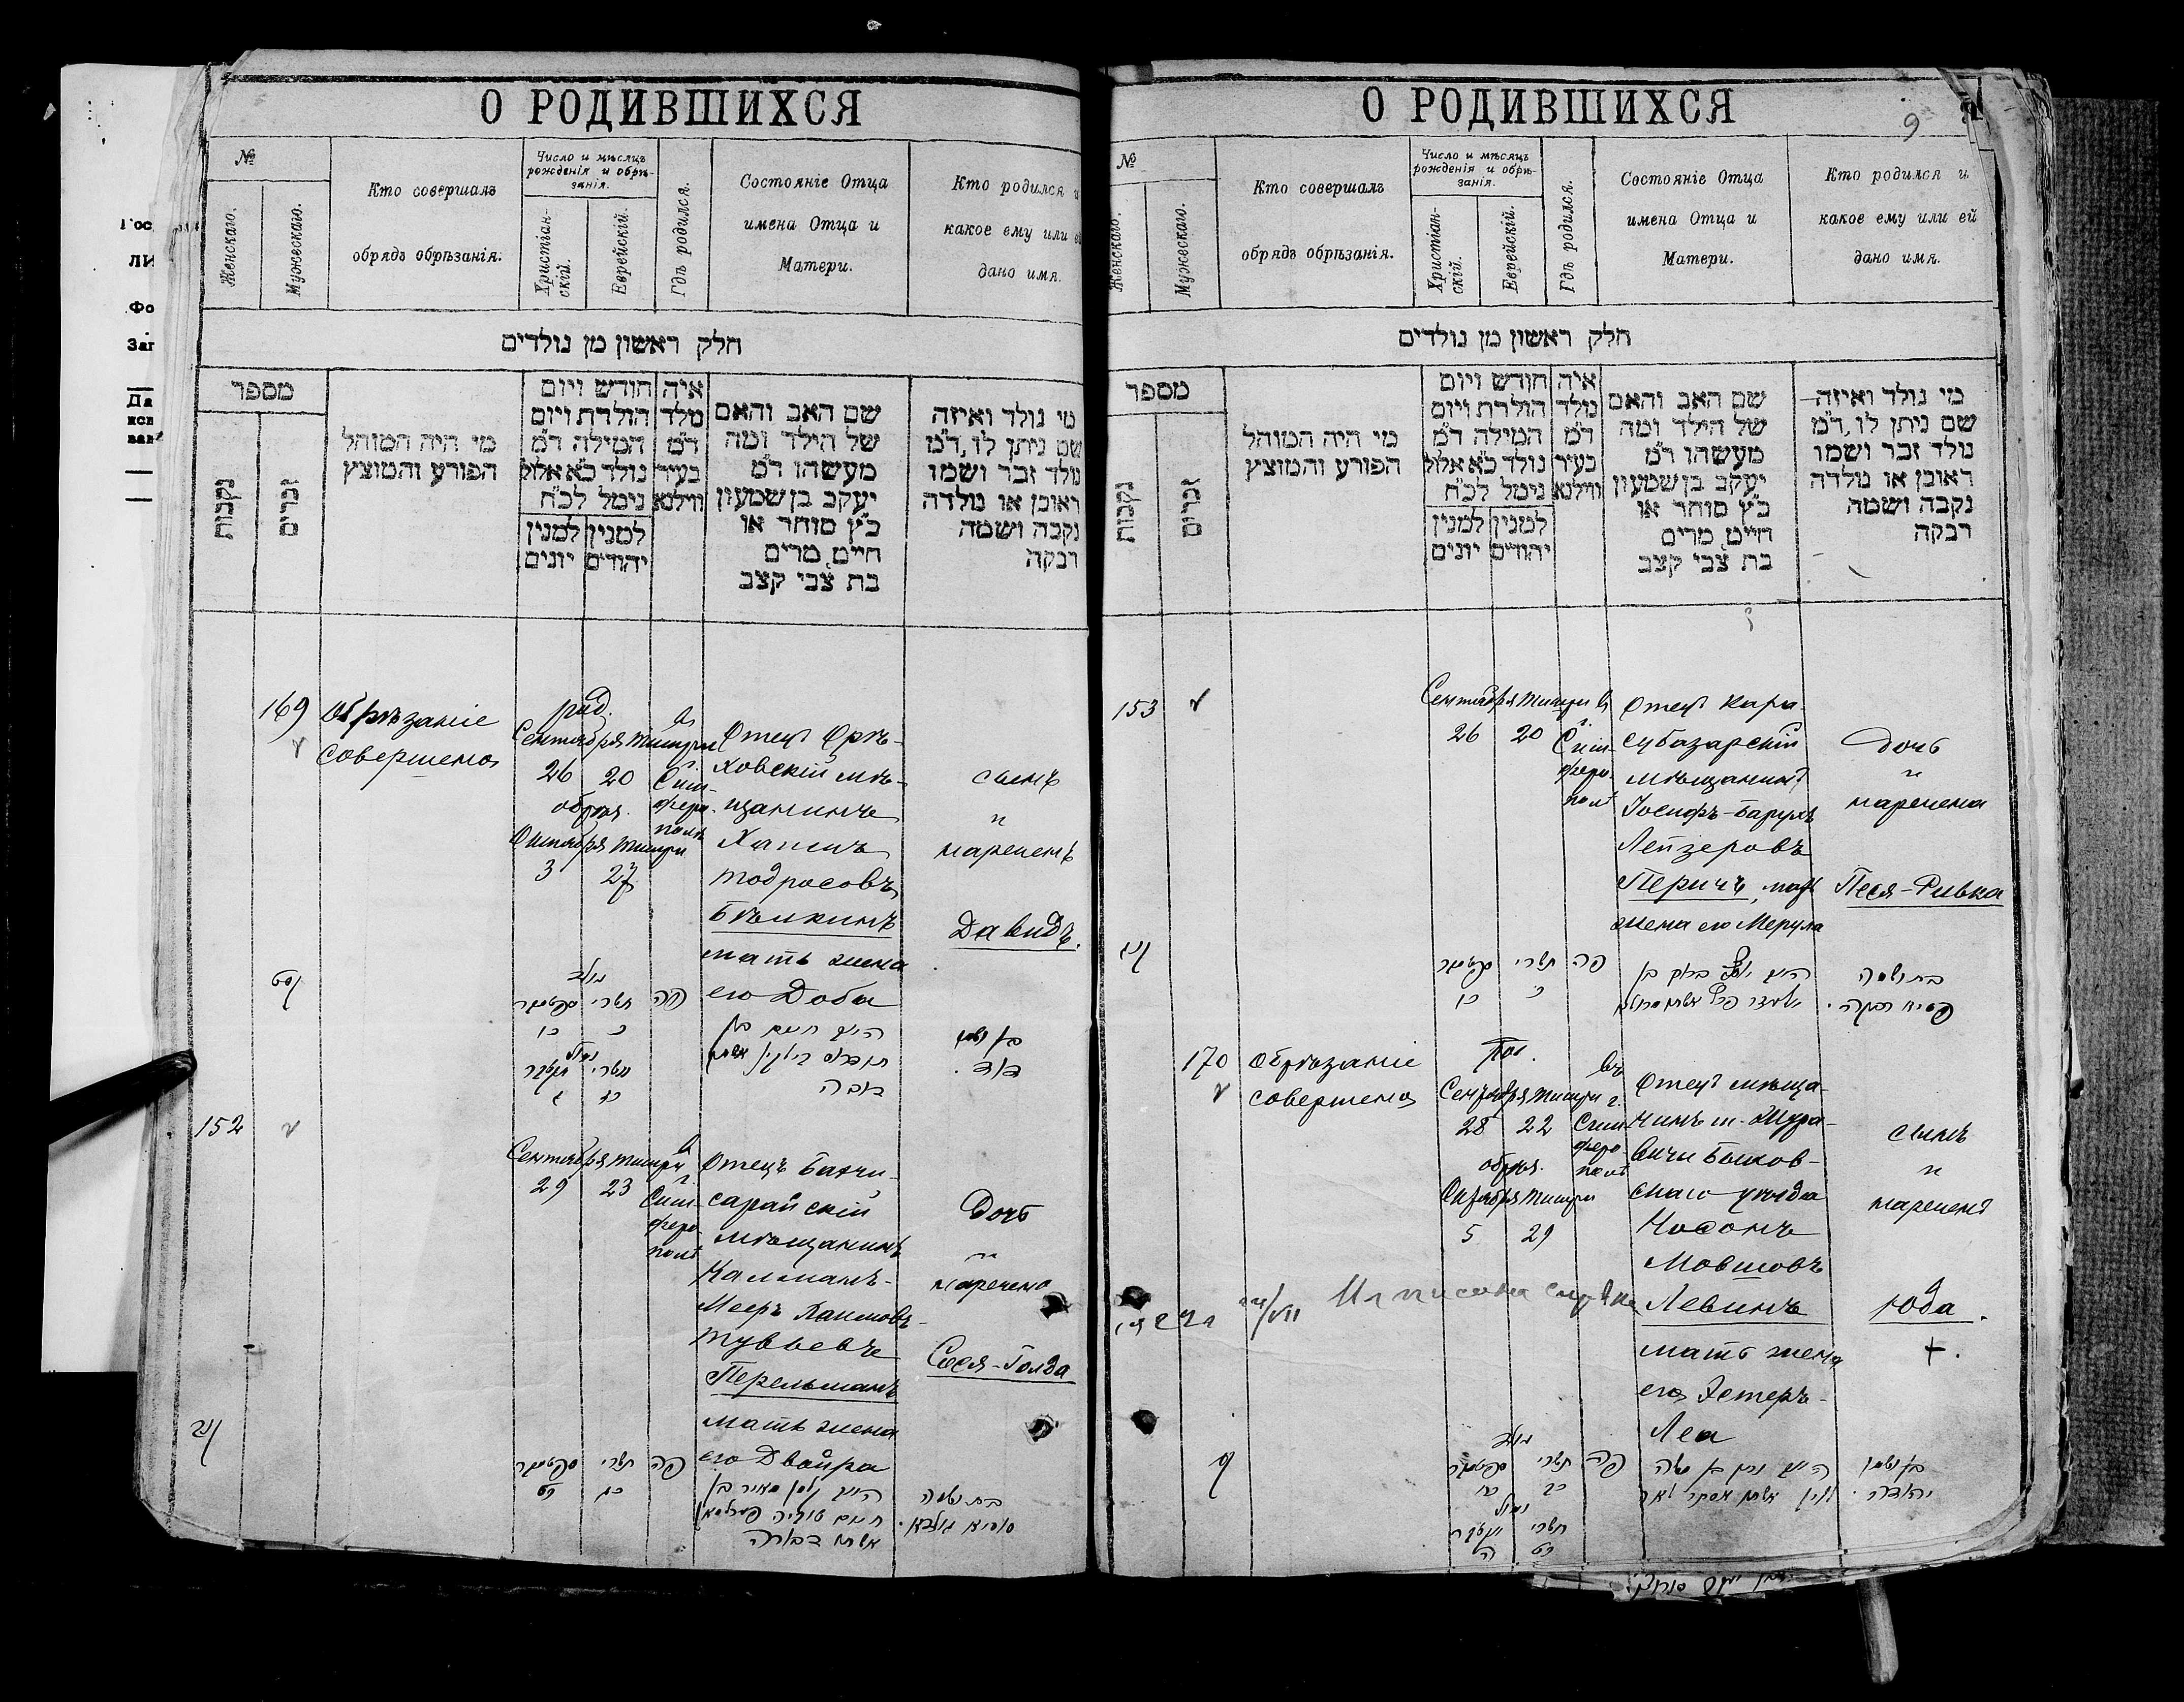 О РОДИВШИХСЯ
№
Женскаго.
Мужескаго.
Кто совершалъ
обрядъ обрѣзанія.
Число и мѣсяцъ
рожденія и обрѣ-
занія.
Христіан-
скій.
Еврейскій.
Гдѣ родился.
Состояніе Отца
имена Отца и
Матери.
Кто родился и
какое ему или ей
дано имя.
חלק ראשון מן נולדים
מספר
נקבות
זכרים
מי היה המוהל
הפורע והמוצץ
חודש ויום
הולדת ויום
המילה ד״מ
נולד כ״א אלול
נימל לכ״ח
למנין למנין
יהודים יונים
איה
נולד
ד״מ
בעיר
ווילנא
שם האב והאם
של הילד ומה
מעשהו ד״מ
יעקב בן שמעון
כ״ץ סוחר או
חייט, מרים
בת צבי קצב
מי נולד ואיזה
שם ניתן לו, ד״מ
נולד זכר ושמו
ראובן או נולדה
נקבה ושמה
רבקה
169
Обрѣзаніе
совершено
род.
Сентября Тишри
26 20
обрѣз.
Октября Тишри
3 27
въ
г.
Сим-
феро-
полѣ
Отецъ Орѣ-
ховскій мѣ-
щанинъ
Хаимъ
Тодросовъ
Бѣлкинъ
мать жена
его Доба
сынъ
"
нареченъ
Давидъ.
נולד
ספטמבר תשרי פה
כו כ
נמול
תשרי
כז ג
היינו חיים בן
אשתו
דובה
בן ושמו
דוד.
152
Сентября Тишри
29 23
въ
г.
Сим-
феро-
полѣ
Отецъ Бахчи-
сарайскій
мѣщанинъ
Калманъ-
Мееръ Хаимовъ-
Тувьевъ
Перельманъ
мать жена
его Двойра
Дочь
"
наречена
Сося-Голда
ספטמבר תשרי פה
כט כג
בן
חיים טוביה פערלמאן
אשתו דבורה
בת ושמה
סוסיא גולדא.
О РОДИВШИХСЯ
9
№
Женскаго.
Мужескаго.
Кто совершалъ
обрядъ обрѣзанія.
Число и мѣсяцъ
рожденія и обрѣ-
занія.
Христіан-
скій.
Еврейскій.
Гдѣ родился.
Состояніе Отца
имена Отца и
Матери.
Кто родился и
какое ему или ей
дано имя.
חלק ראשון מן נולדים
מספר
נקבות
זכרים
מי היה המוהל
הפורע והמוצץ
חודש ויום
הולדת ויום
המילה ד״מ
נולד כ״א אלול
נימל לכ״ח
למנין למנין
יהודים יונים
איה
נולד
ד״מ
בעיר
ווילנא
שם האב והאם
של הילד ומה
מעשהו ד״מ
יעקב בן שמעון
כ״ץ סוחר או
חייט, מרים
בת צבי קצב
מי נולד ואיזה
שם ניתן לו, ד״מ
נולד זכר ושמו
ראובן או נולדה
נקבה ושמה
רבקה
153
Сентября Тишри
26 20
въ
г.
Сим-
феро-
полѣ
Отецъ Кара-
субазарскій
мѣщанинъ
Іосифъ-Барухъ
Лейзеровъ
Перичъ, мать
жена его Мерула
Дочь
"
наречена
Песя-Ривка
ספטמבר תשרי פה
כו כ
ברוך בן
בת ושמה
פסיה רבקה.
170
Обрѣзаніе
совершено
род.
Сентября Тишри
28 22
обрѣз.
Октября Тишри
5 29
въ
г.
Сим-
феро-
полѣ
Отецъ мѣща-
нинъ м. Жура-
вичи Быхов-
скаго уѣзда
Носонъ
Мовшовъ
Левинъ
мать жена
его Эстеръ-
Леа
сынъ
"
нареченъ
Юда.
+.
נולד
ספטמבר תשרי פה
כח כב
נמול
תשרי
ה כט
נתן בן משה
לוין אשתו אסתר לאה
בן ושמו
יהודה.